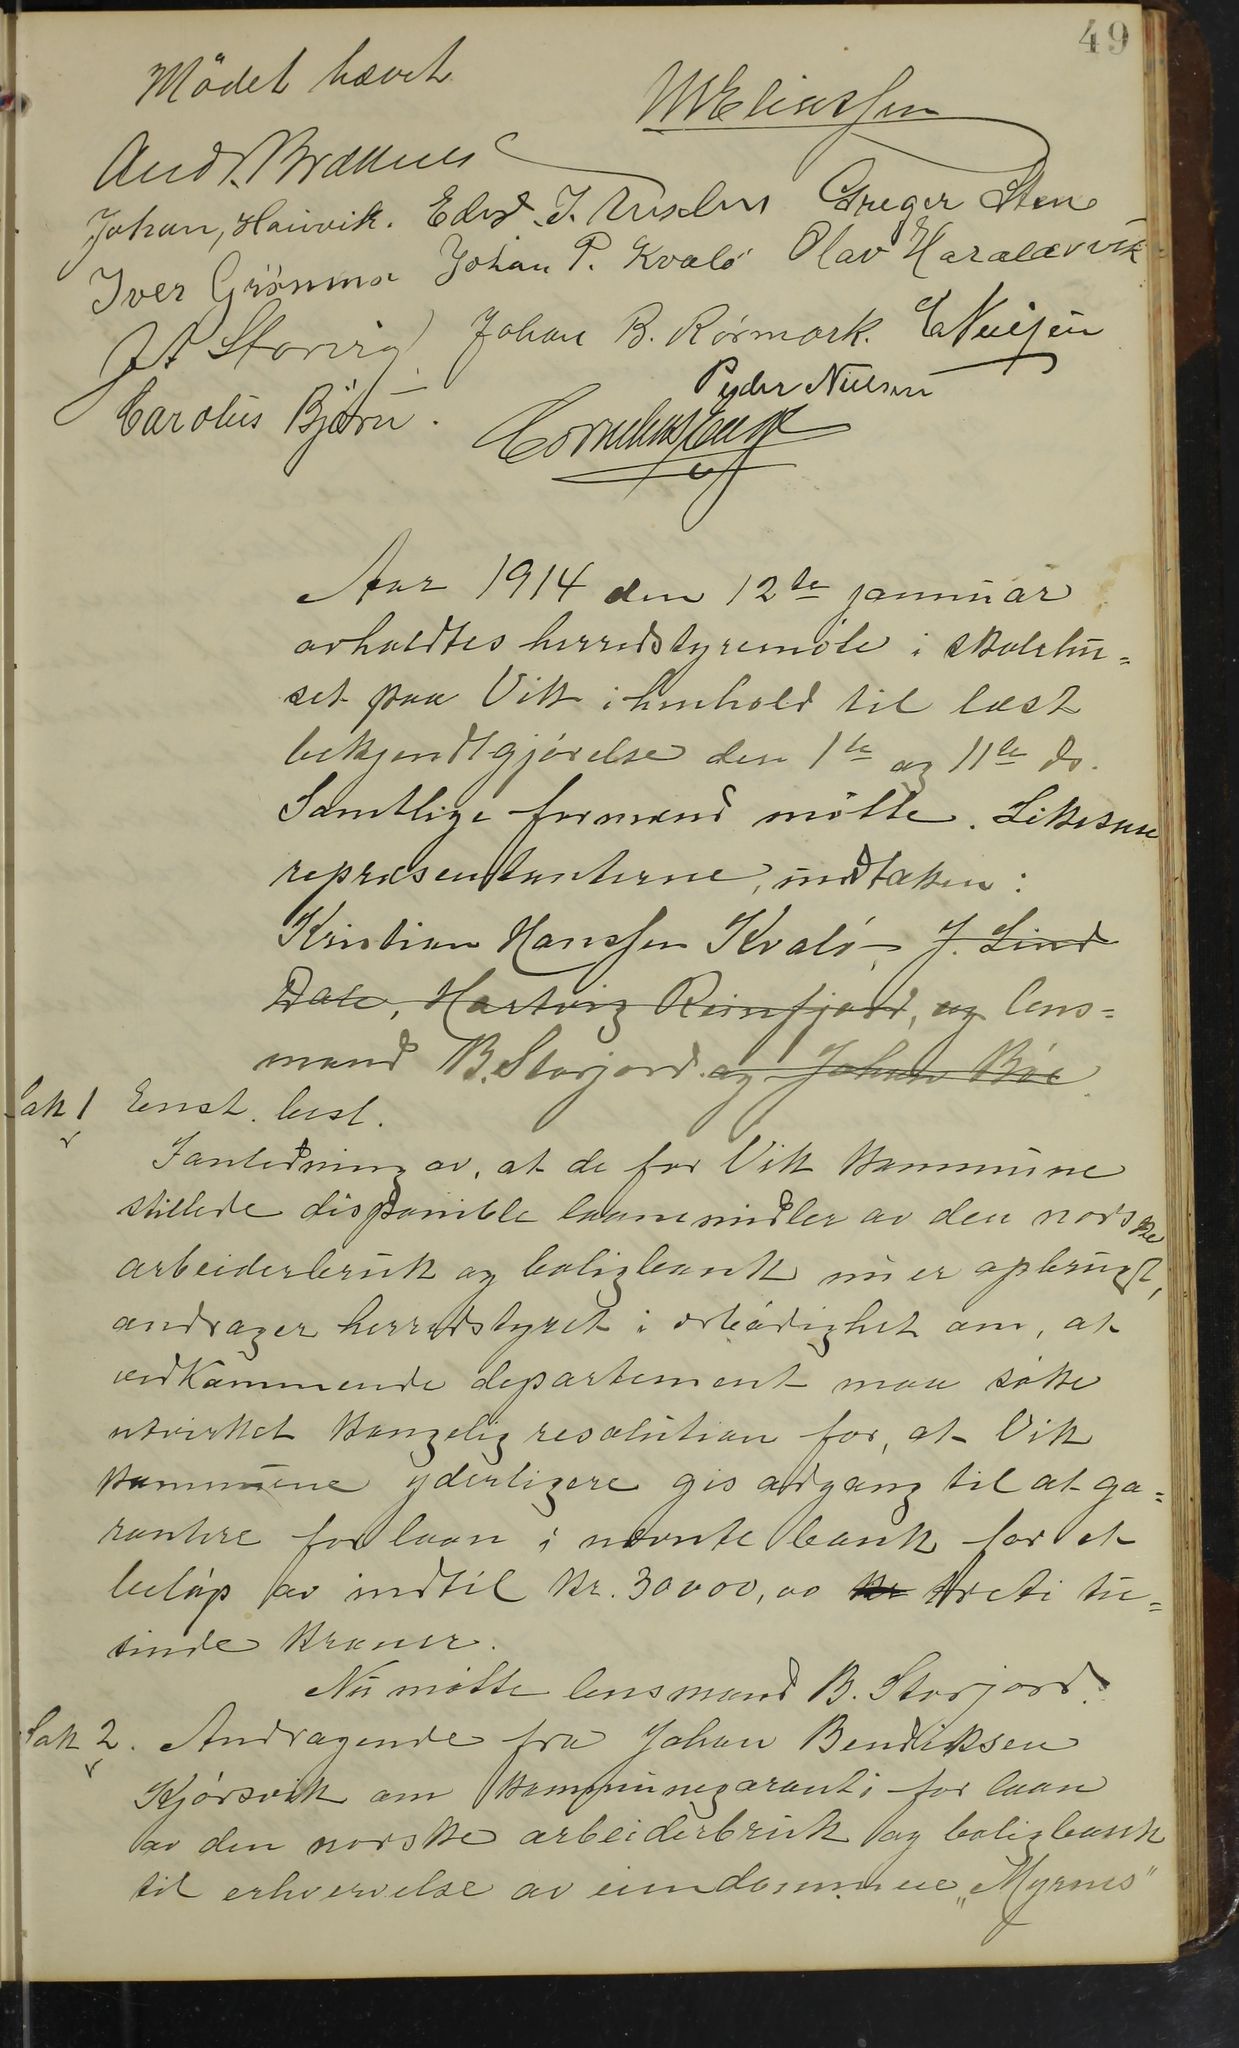 49
Mödet hævet
MEliassen
And. Brattnes
Johan, Hauvik. Edv. J. Greger Sten
Iver Grönmo Johan P. Kvalö Olav Haraldsvik
J A Storvig Johan B. Rörmark. E Nielsen
Peder Nielsen
Carolus Björn.
Cornelius Enge
Aar 1914 den 12te januar
avholdtes herredstyremöte i skolehu=
set paa Vik i henhold til læst
bekjendtgjörelse den 1te og 11te ds.
Samtlige formænd mötte. Likesaa
repræsentanterne, undtaken:
Kristian Hanssen Kvalö, J. Lind
Dale, Hartvig Reinfjord, og lens=
mand B. Storjord. og Johan Böe
Sak 1 Enst. besl.
I anledning av, at de for Vik kommune
stillede disponible laanemidler av den norske
arbeiderbruk og boligbank nu er opbrugt,
andrager herredstyret i ærbödighet om, at
vedkommende departement maa söke
utvirket kongelig resolution for, at Vik
kommune yderligere gis adgang til at ga=
rantere for laan i nævnte bank for et
belöp av indtil kr. 30000,00 kr treti tu=
sinde kroner.
Nu mötte lensmand B. Storjord.
Sak 2. Andragende fra Johan Bendiksen
Kjörsvik om kommunegaranti for laan
av den norske arbeiderbruk og boligbank
til erhvervelse av eiendommen „Myrnes"